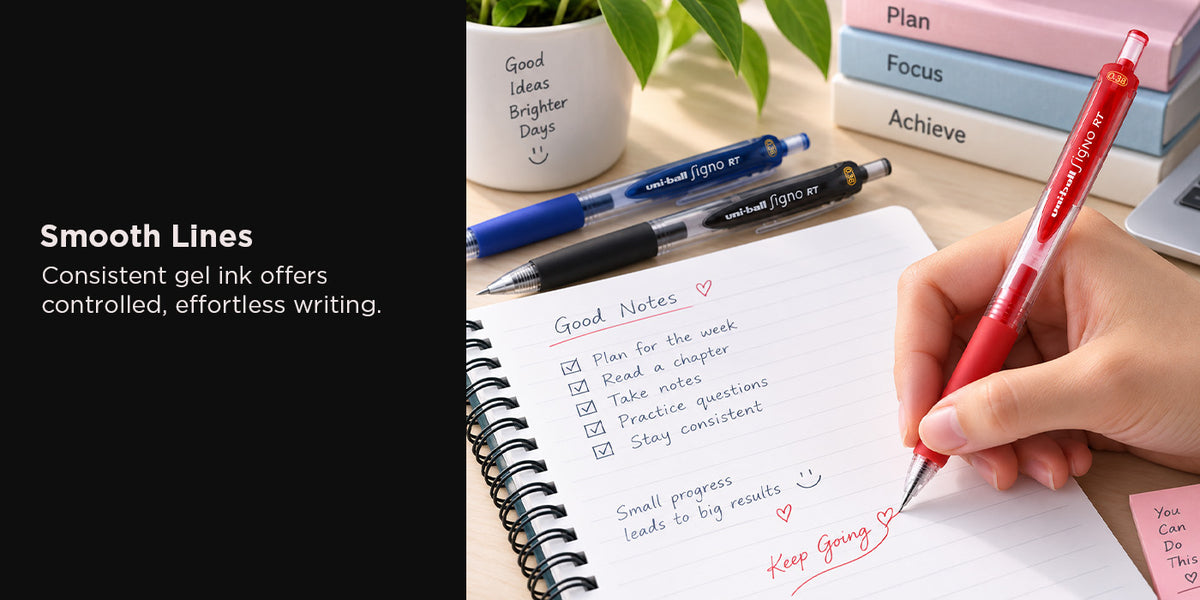 Smooth Lines
Consistent gel ink offers
controlled, effortless writing.
Good
Ideas
Brighter
Days
Plan
Focus
Achieve
uni-ball Signo RT
0.38
uni-ball Signo RT
0.38
uni-ball Signo RT
0.38
Good Notes
Plan for the week
Read a chapter
Take notes
Practice questions
Stay consistent
Small progress
leads to big results
Keep Going
You
Can
Do
This